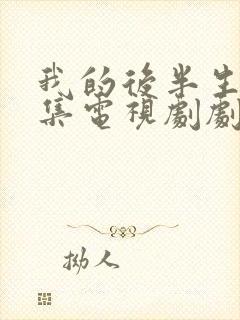 我的後半生
集電視劇劇
拗人